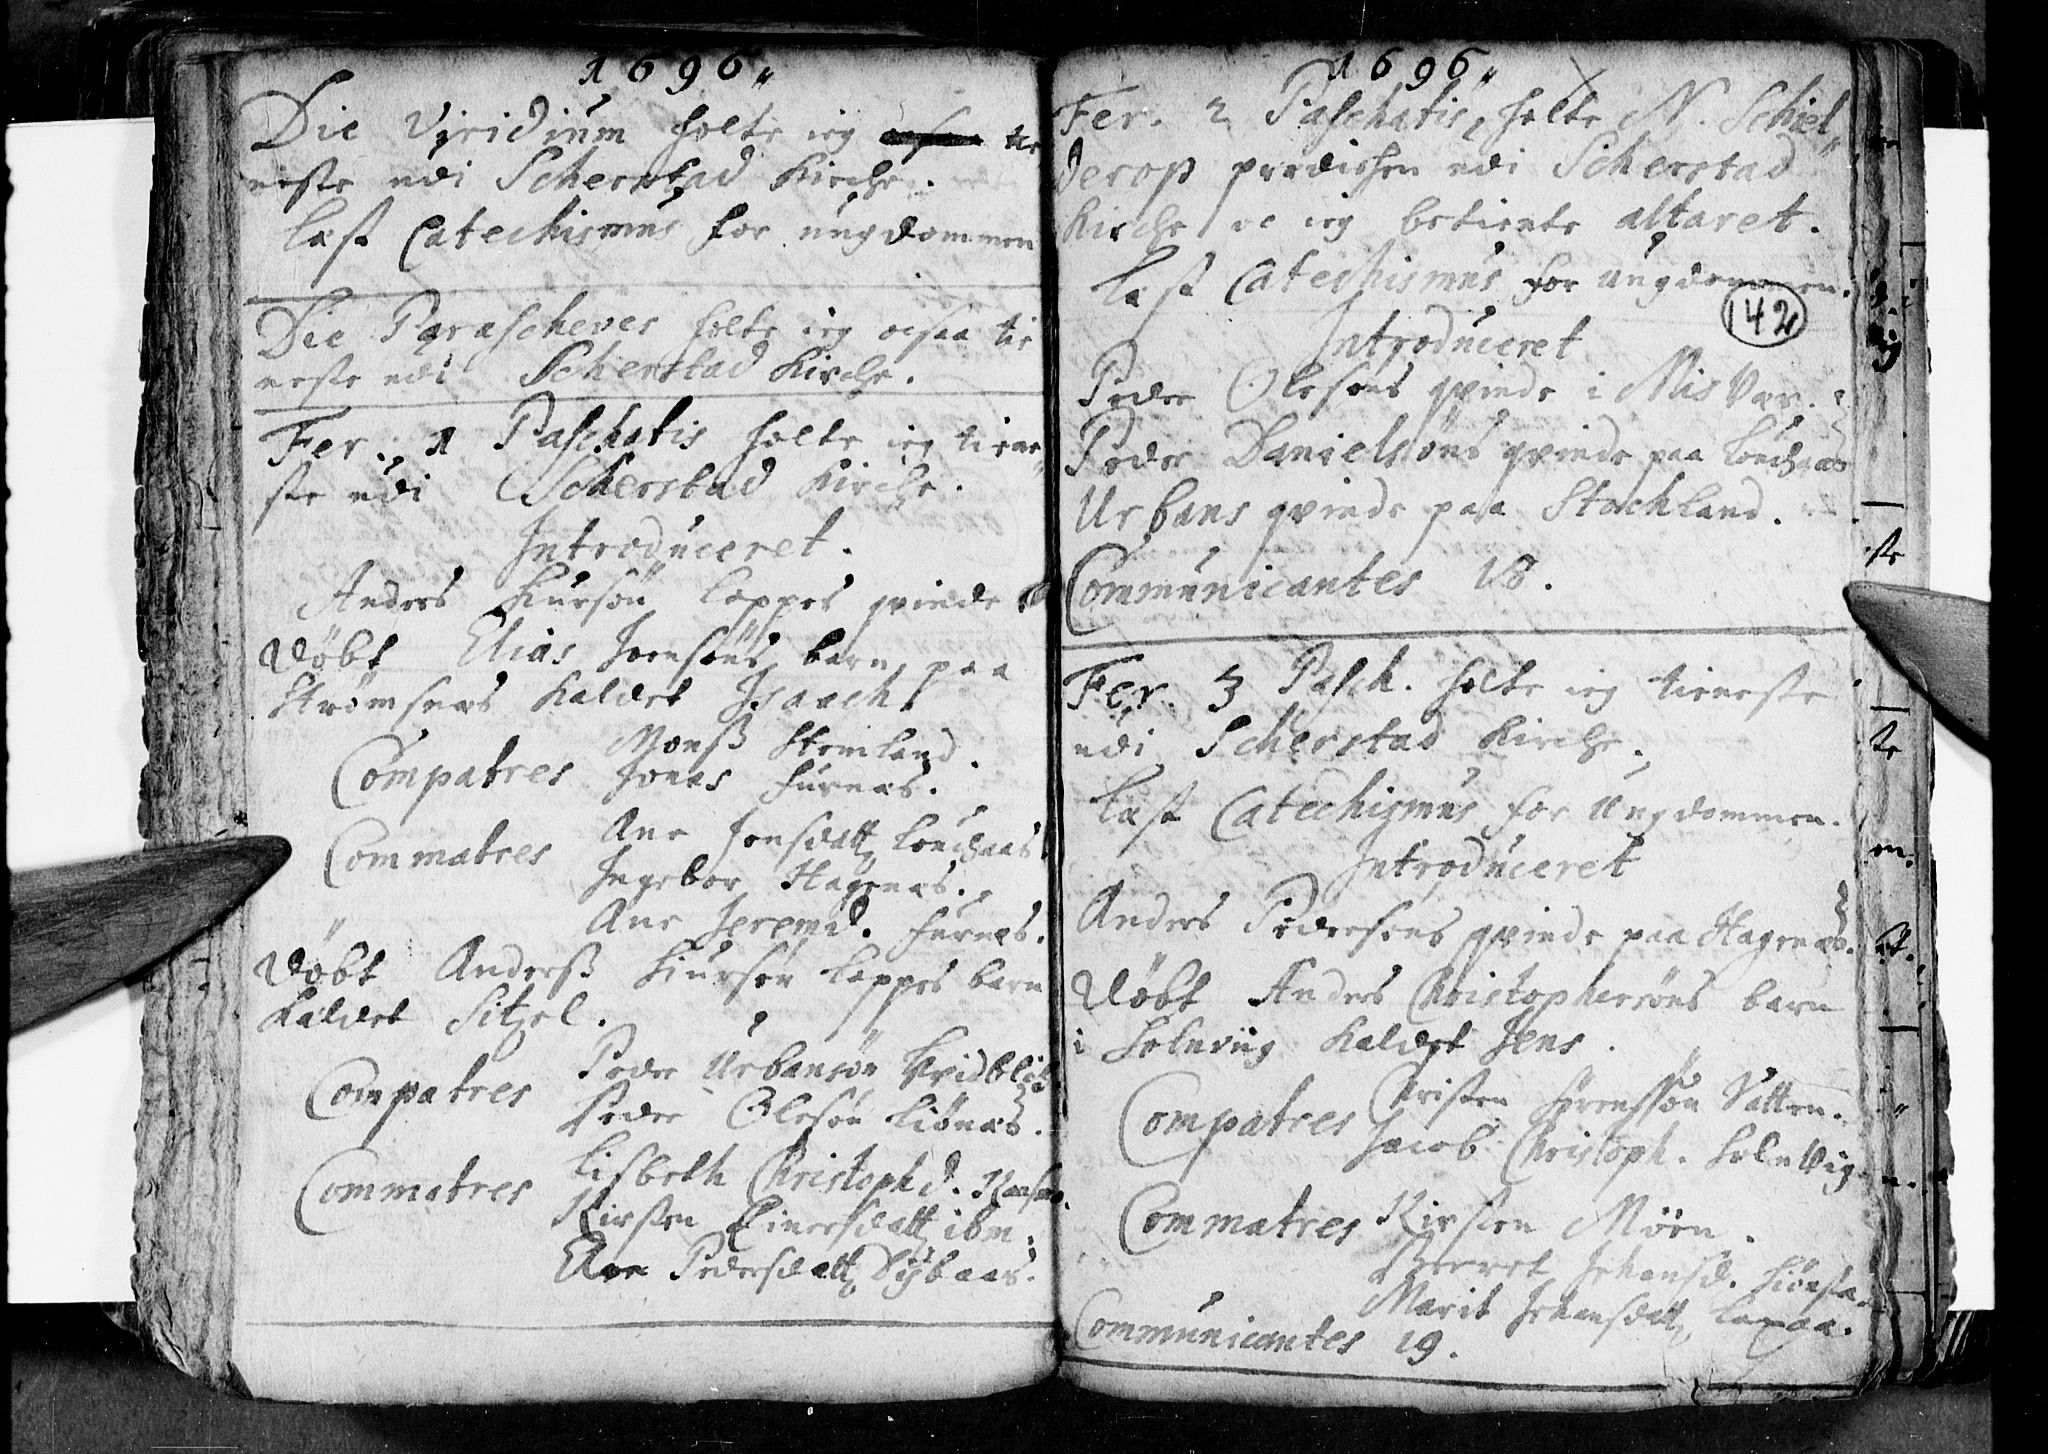 1696
Die Viridium holte ieg tie
neste udi Scherstad Kirche.
læst Catechismus for ungdommen
Die Parascheves holte ieg ocsaa tie
neste udi Scherstad Kirche.
Fer. 1 Paschatis holte ieg tiene
ste udi Scherstad Kirche.
Introduceret.
Anders Siursøn Lappes qvinde
Døbt Elias Joensøns barn paa
Strømsnes kaldet Isaach
Monß Steinland.
Compatres Jonas Furnæs.
Commatres Ane Jonsdatt
Ingebor Hagenæs.
Ane Jeremd. Furnæs.
Døbt Anderß Siursøn Lappes barn
kaldet Sitzel.
Peder Urbansøn
Compatres Peder Olesøn
Commatres Lisbeth Christophd.
Kirsten Einersdatt ibm:
Ane Pedersdatt
1696
Fer. 2 Paschatis, holte N. Schiel
derop prædichen udi Scherstad
Kirche oc ieg betiente altaret.
læst Catechismus for ungdommen.
142
Introduceret
Peder Olesøns qvinde i Misvær.
Peder Danielsøns qvinde paa
Urbans qvinde paa Stochland.
Communicantes 18.
Fer. 3 Pasch. holte ieg tieneste
udi Scherstad Kirche.
læst Catechismus for Ungdommen.
Introduceret
Anders Pedersøns qvinde paa Hagenæs.
Døbt Anders Christophersøns barn
i Solnviig kaldet Jens.
Christen Sørenssøn Vatten.
Compatres Jacob Christoph. Solnvig
Commatres Kirsten Møen.
Berret Johansd.
Marit Johansdatt
Communicantes 19.